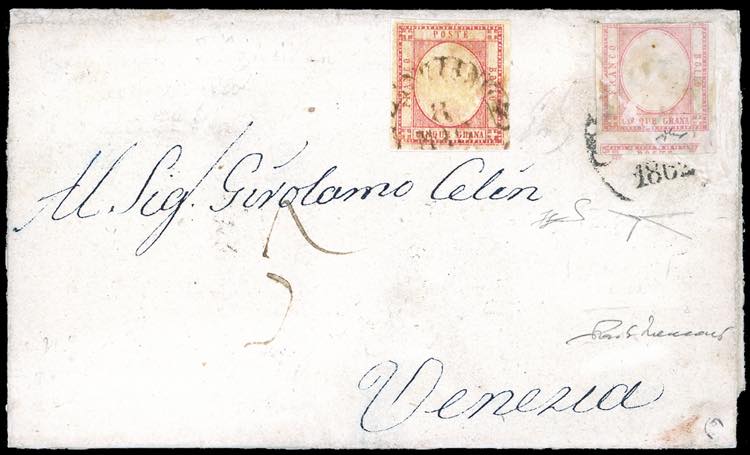 POSTE
FRANCO
BOLLO
CINQUE GRANA
FRANCO
BOLLO
QUE GRANA
1862
Al. Sig. Girolamo Celin
Venezia